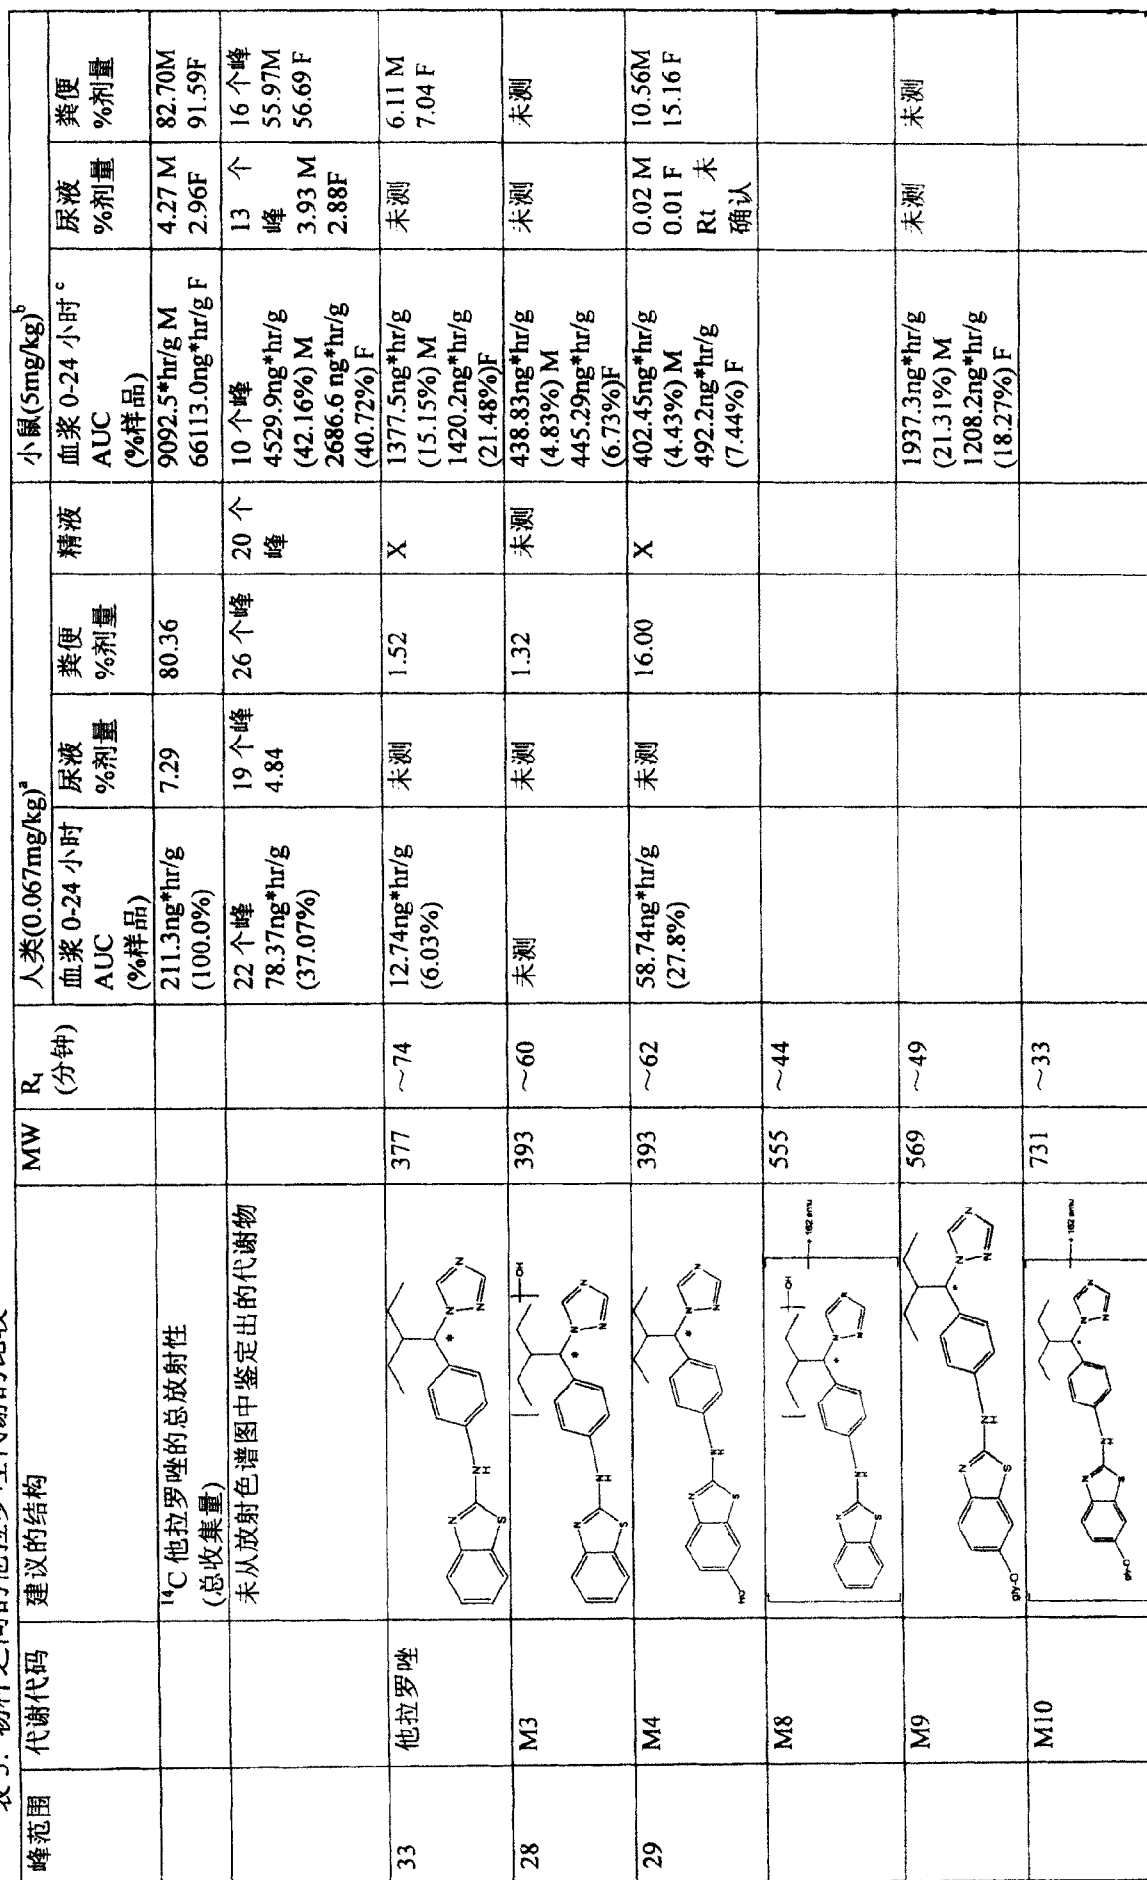 表 5: 物种之间的他拉罗唑代谢的比较
峰范围 代谢代码 建议的结构 MW Rt (分钟) 人类(0.067mg/kg)a 小鼠(5mg/kg)b
血浆 0-24 小时 AUC (%样品) 尿液 %剂量 粪便 %剂量 精液 血浆 0-24 小时 c AUC (%样品) 尿液 %剂量 粪便 %剂量
14C 他拉罗唑的总放射性 (总收集量) 211.3ng*hr/g (100.0%) 7.29 80.36 9092.5*hr/g M 66113.0ng*hr/g F 4.27 M 2.96F 82.70M 91.59F
未从放射色谱图中鉴定出的代谢物 22 个峰 78.37ng*hr/g (37.07%) 19 个峰 4.84 26 个峰 20 个峰 10 个峰 4529.9ng*hr/g (42.16%) M 2686.6 ng*hr/g (40.72%) F 13 个峰 3.93 M 2.88F 16 个峰 55.97M 56.69 F
33 他拉罗唑 377 ～74 12.74ng*hr/g (6.03%) 未测 1.52 X 1377.5ng*hr/g (15.15%) M 1420.2ng*hr/g (21.48%)F 未测 6.11 M 7.04 F
28 M3 OH 393 ～60 未测 未测 1.32 未测 438.83ng*hr/g (4.83%) M 445.29ng*hr/g (6.73%)F 未测 未测
29 M4 HO 393 ～62 58.74ng*hr/g (27.8%) 未测 16.00 X 402.45ng*hr/g (4.43%) M 492.2ng*hr/g (7.44%) F 0.02 M 0.01 F Rt 未确认 10.56M 15.16 F
M8 OH + 162 amu 555 ～44
M9 gly-O 569 ～49 1937.3ng*hr/g (21.31%) M 1208.2ng*hr/g (18.27%) F 未测 未测
M10 gly-O + 162 amu 731 ～33